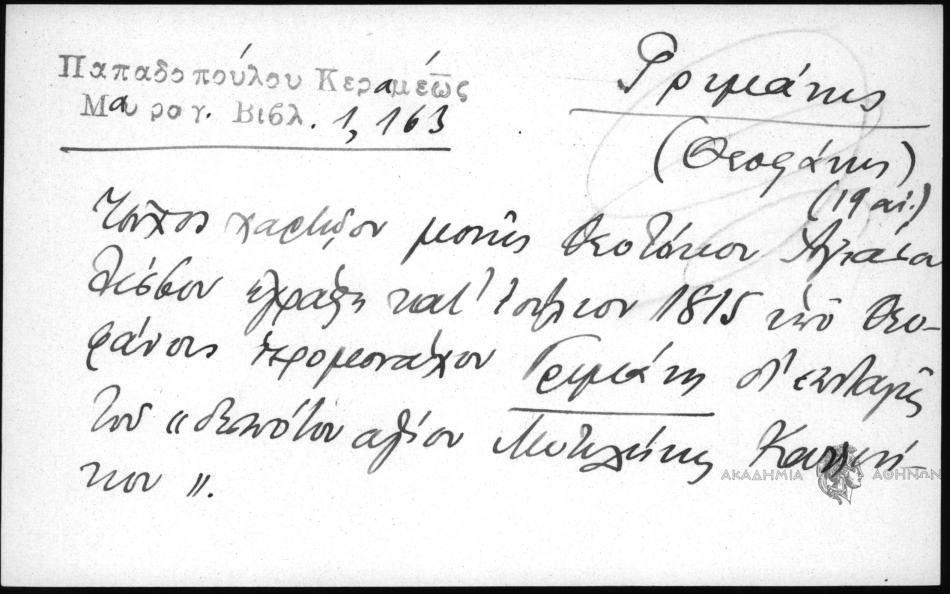 Παπαδοπούλου Κεραμέως
Μαυρογ. Βιβλ. 1, 163
Γριμάνης
(Θεοφάνης)
(19 αἰ.)
Τεῦχος χαρτῷον μονῆς Θεοτόκου
Λέσβου ἐγράφη κατ' Ἰούλιον 1815 ὑπὸ Θεο-
φάνους ἱερομονάχου Γριμάνη δι' ἐπιταγῆς
τοῦ «δεσπότου ἁγίου Μυτιλήνης Καλλινί-
κου».
ΑΚΑΔΗΜΙΑ ΑΘΗΝΩΝ